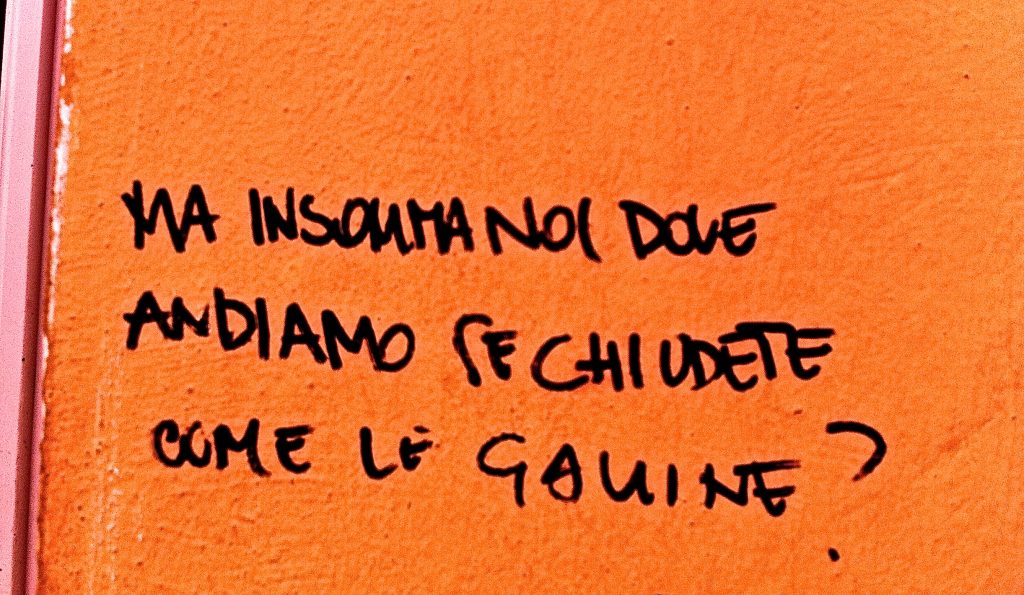 MA INSOMMA NOI DOVE
ANDIAMO SE CHIUDETE
COME LE GALLINE?